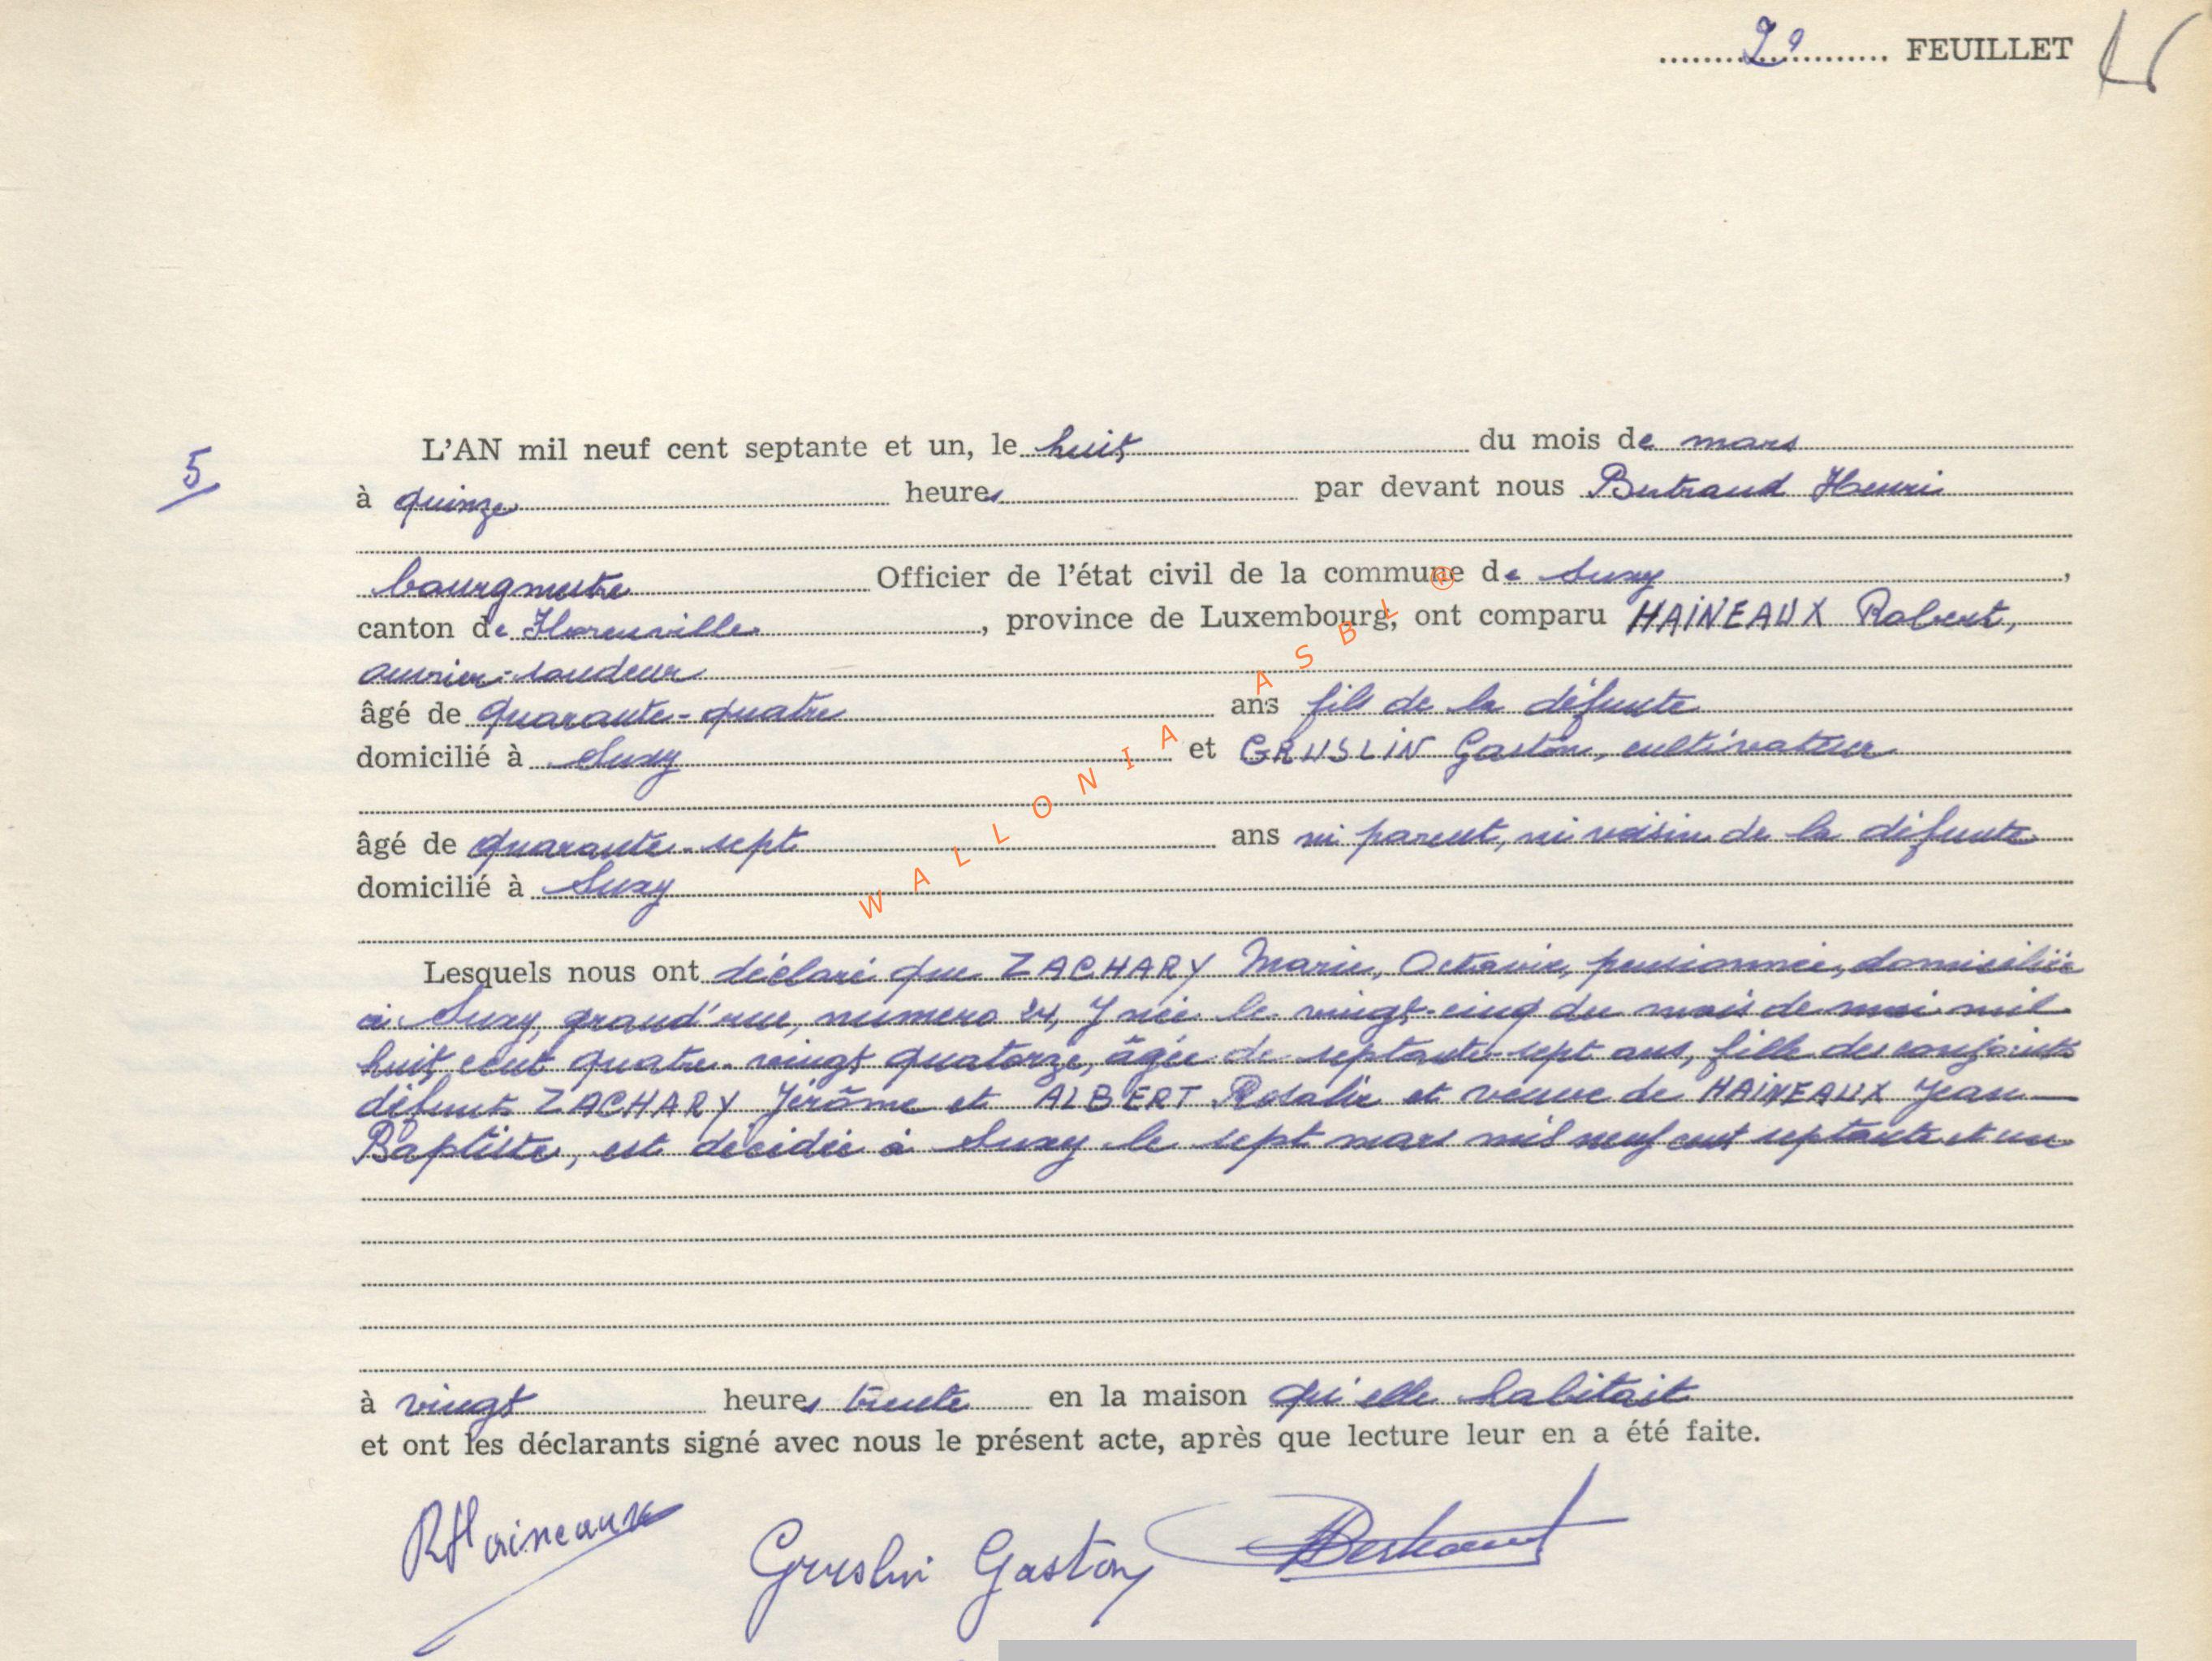 2e FEUILLET
5
L'AN mil neuf cent septante et un, le huit du mois de mars
à quinze heures par devant nous Bertrand Henri
bourgmestre Officier de l'état civil de la commune de Suxy,
canton de Florenville, province de Luxembourg, ont comparu HAINEAUX Robert,
ouvrier-soudeur
âgé de quarante-quatre ans fils de la défunte
domicilié à Suxy et GRUSLIN Gaston, cultivateur
âgé de quarante-sept ans ni parent, ni voisin de la défunte
domicilié à Suxy
Lesquels nous ont déclaré que ZACHARY Marie, Octavie, pensionnée, domiciliée
à Suxy, grand'rue, numéro 24, y née le vingt-cinq du mois de mai mil
huit cent quatre-vingt quatorze, âgée de septante-sept ans, fille des conjoints
défunts ZACHARY Jérôme et ALBERT Rosalie et veuve de HAINEAUX Jean
Baptiste, est décédée à Suxy le sept mars mil neuf cent septante et un
à vingt heures trente en la maison qu'elle habitait
et ont les déclarants signé avec nous le présent acte, après que lecture leur en a été faite.
RHaineaux Gruslin Gaston HBertrand
WALLONIA ASBL ®